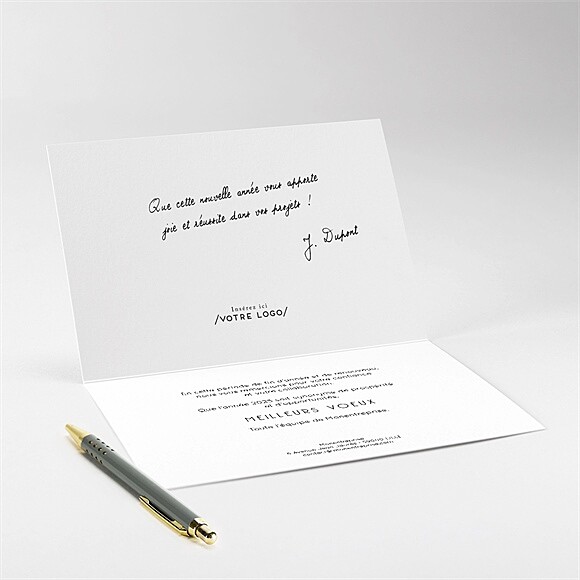 Que cette nouvelle année vous apporte
joie et réussite dans vos projets !
J. Dupont
Insérez ici
/VOTRE LOGO/
En cette période de fin d'année et de renouveau,
nous vous remercions pour votre confiance
et votre collaboration.
Que l'année 2023 soit synonyme de prospérité
et d'opportunités.
MEILLEURS VOEUX
Toute l'équipe de Monentreprise.
Monentreprise
6 Avenue Jean Jaurès - 59000 LILLE
contact@monentreprise.com